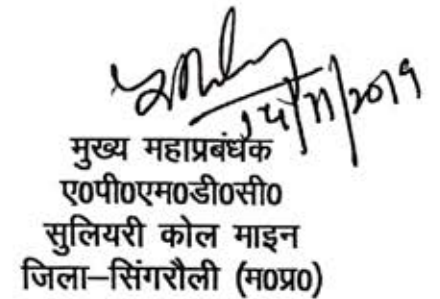 14/11/2019
मुख्य महाप्रबंधक
ए0पी0एम0डी0सी0
सुलियरी कोल माइन
जिला–सिंगरौली (म0प्र0)